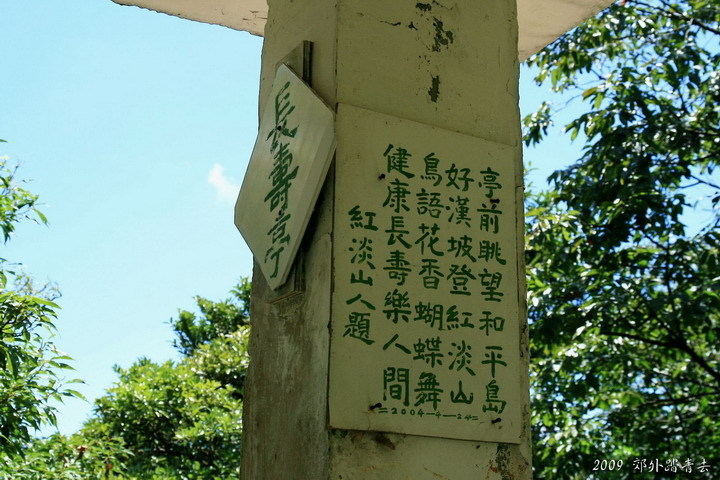 長壽亭
亭前眺望和平島
好漢坡登紅淡山
鳥語花香蝴蝶舞
健康長壽樂人間
紅淡山人題
=2004-4-24=
2009 郊外踏青去